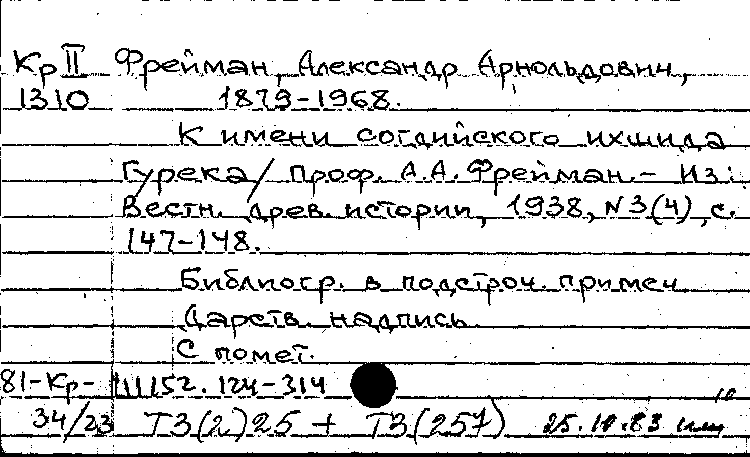 Кр II Фрейман, Александр Арнольдович,
1310 1879-1968.
К имени согдийского ихшида
Гурека / проф. А.А. Фрейман. - Из:
Вестн. древ. истории, 1938, N3(4), с.
147-148.
Библиогр. в подстроч. примеч
Дарств. надпись.
С помет.
81-Кр- 111152. 124-314
10
34/23 Т3(2)25 + Т3(257) 25.10.83